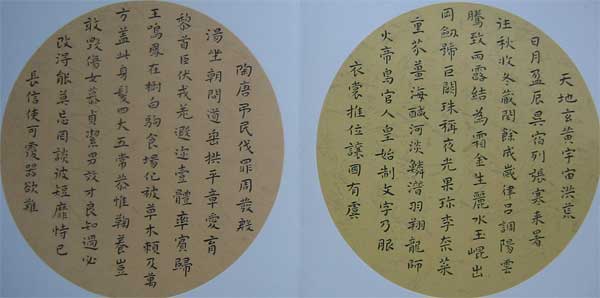 天地玄黃宇宙洪荒
日月盈辰昃宿列張寒来暑
往秋收冬藏閏餘成歲律呂調陽雲
騰致雨露結為霜金生麗水玉崐出
岡劍號巨闕珠稱夜光果珍李柰菜
重芥薑海鹹河淡鱗潛羽翔龍師
火帝鳥官人皇始制文字乃服
衣裳推位讓國有虞
陶唐弔民伐罪周發殷
湯坐朝問道垂拱平章愛育
黎首臣伏戎羌遐迩壹體率賓歸
王鳴鳳在樹白駒食場化被草木賴及萬
方蓋此身髮四大五常恭惟鞠養豈
敢毀傷女慕貞潔男效才良知過必
改得能莫忘罔談彼短靡恃己
長信使可覆器欲難